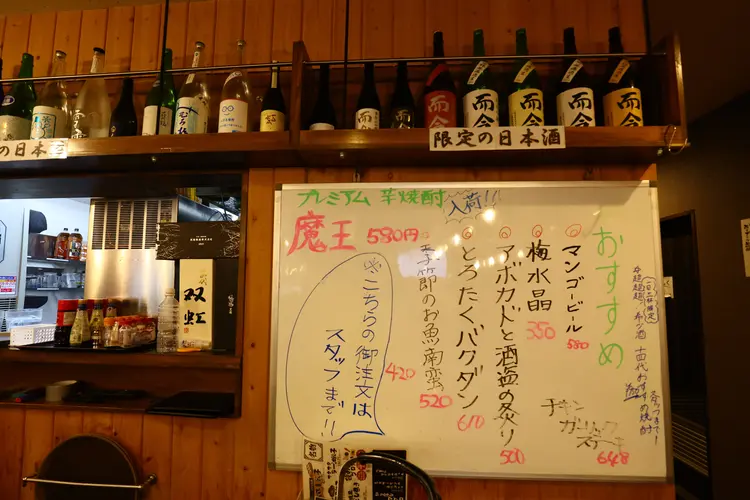 の日本
限定の日本酒
而今
而今
而今
而今
而今
而今
双虹
プレミアム 芋焼酎
入荷!!
魔王 580円
おすすめ
マンゴービール
580
梅水晶
350
アボカドと酒盗の炙り
500
とろたくバクダン
610
季節のお魚南蛮
520
420
※こちらの御注文は
スタッフまで!!
チキン
ガーリック
ステーキ
648